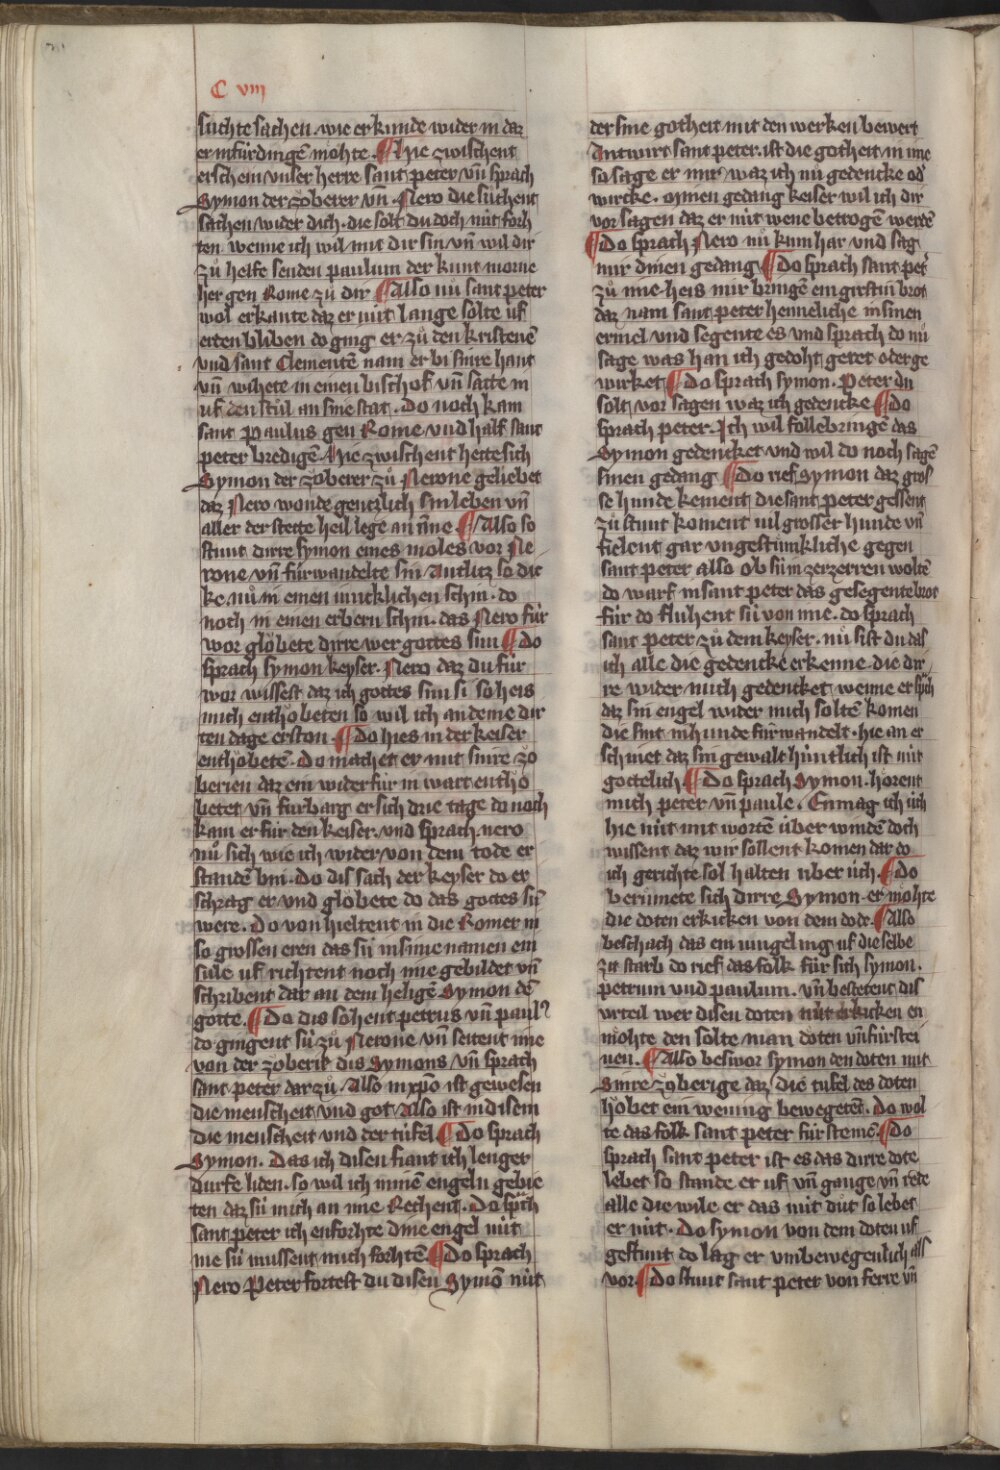 C viij
suchte sachen. wie er kunde wider in daz
er in fúrdingē mohte. ¶ Hie zwischent
erschein vnser herre sant peter vn̄ sprach
Symon der zoͮberer vn̄ Nero die súchent
sachen wider dich. die solt du doch nút forh
ten wenne ich wil mit dir sin vn̄ wil dir
zuͦ helfe senden paulum der kunt morne
her gen Rome zuͦ dir ¶ Also nu sant peter
wol erkante daz er nút lange solte uf
erten bliben do ging er zuͦ den kristenē
vnd sant Clementē nam er bi sinre hant
vn̄ wihete in einen bischof vn̄ satte in
uf den stuͦl an sine stat. Do noch kam
sant Paulus gen Rome vnd half sant
peter bredigē. Hie zwischent hette sich
Symon der zoͮberer zuͦ Nerone geliebet
daz Nero wonde gentzlich sin leben vn̄
aller der stette heil lege an ime ¶ Also so
stunt dirre symon eines moles vor Ne
rone vn̄ fúrwandelte sin Antlitz so dic
ke nuͦ in einen iuncklichen schin. do
noch in einen erbern schin. das Nero fúr
wor gloͮbete dirre wer gottes sun ¶ Do
sprach symon keyser. Nero daz du fúr
wor wissest daz ich gottes sun si so heis
mich enthoͮbeten so wil ich an deme dir
ten dage erston. ¶ Do hies in der keiser
enthoͮbetē. Do machet er mit sinre zo
berien daz ein wider fúr in wart entho
betet vn̄ furbarg er sich drie tage do noch
kam er fúr den keiser. vnd sprach. nero
nuͦ sich wie ich wider von dem tode er
standē bin. do dis sach der keyser do er
schrag er vnd gloͮbete do das gottes sū
were. Do von hieltent in die Romer in
so grossen eren das sú in sinne namen ein
sule uf richtent noch ime gebildet vn̄
schribent dar an dem heligē Symon dē
gotte. ¶ Do dis sohent petrus vn̄ paulꝰ
do gingent sú zuͦ Nerone vn̄ seitent ime
von der zoͮberie dis Symons vn̄ sprach
sant peter dar zuͦ. Also in xp̄o ist gewesen
die menscheit vnd got also ist in disem
die menscheit vnd der túfel ¶ Do sprach
Symon. Das ich disen fiant ich lenger
durfe liden. so wil ich minē engeln gebie
ten daz sú mich an ime Rechent. Do sp̄ch
sant peter ich enforhte dine engel nút
me sú mussent mich forhtē. ¶ Do sprach
Nero Peter fortest du disen Symō nút
der sine gotheit mit den werken bewert
Antwirt sant peter. ist die gotheit in ime
so sage er mir waz ich nu gedencke od̕
wircke. minen gedang keiser wil ich dir
vor sagen daz er nút wene betrogē werdē
¶ Do sprach Nero nuͦ kum har vnd sag
mir dinen gedang ¶ Do sprach sant pet̕
zuͦ ime. heis mir bringē ein girstin brot
daz nam sant peter heimeliche in sinen
ermel vnd segente es vnd sprach do nuͦ
sage was han ich gedoht geret oder ge
wirket ¶ Do sprach symon. Peter du
solt vor sagen waz ich gedencke ¶ Do
sprach peter. Ich wil follebringē das
Symon gedencket vnd wil do noch sagē
sinen gedang ¶ Do rief Symon daz gros
se hunde kement die sant peter gessent
zuͦ stunt koment vil grosser hunde vn̄
fielent gar vngestimkliche gegen
sant peter also ob sú in zerzerren woltē
do warf in sant peter das gesegente brot
fúr do fluhent sú von ime. do sprach
sant peter zuͦ dem keyser. nuͦ sist du das
ich alle die gedencke erkenne die dir
re wider mich gedencket wenne er sp̄ch
daz sin engel wider mich soltē komen
die sint in hunde fúrwandelt. hie an er
schinet daz sin gewalt húntlich ist nút
gottelich ¶ Do sprach Symon. horent
mich peter vn̄ paule. Enmag ich úch
hie nút mit wortē úber windē doch
wissent daz wir sollent komen dar do
ich gerichte sol halten úber úch. ¶ Do
berúmete sich dirre Symon. er mohte
die doten erkicken von dem dode. ¶ Also
beschach das ein iungeling uf die selbe
zit starb do rief das folk fúr sich symon.
petrum vnd paulum. vn̄ bestetent dis
vrteil wer disen doten nút erkicken en
mohte den solte man doten vn̄ fúrstei
nen. ¶ Also beswor symon den doten mit
Sinre zoͮberige daz die túfel des doten
hoͮbet ein wening bewegetēt. Do wol
te das folk sant peter fúr steinē ¶ Do
sprach sant peter ist es das dirre dote
lebet so stande er uf vn̄ gange vn̄ rede
alle die wile er das nút duͦt so lebet
er nút. Do symon von dem doten uf
gestunt do lag er vmbewegenlich als
vor ¶ Do stunt sant peter von ferre vn̄